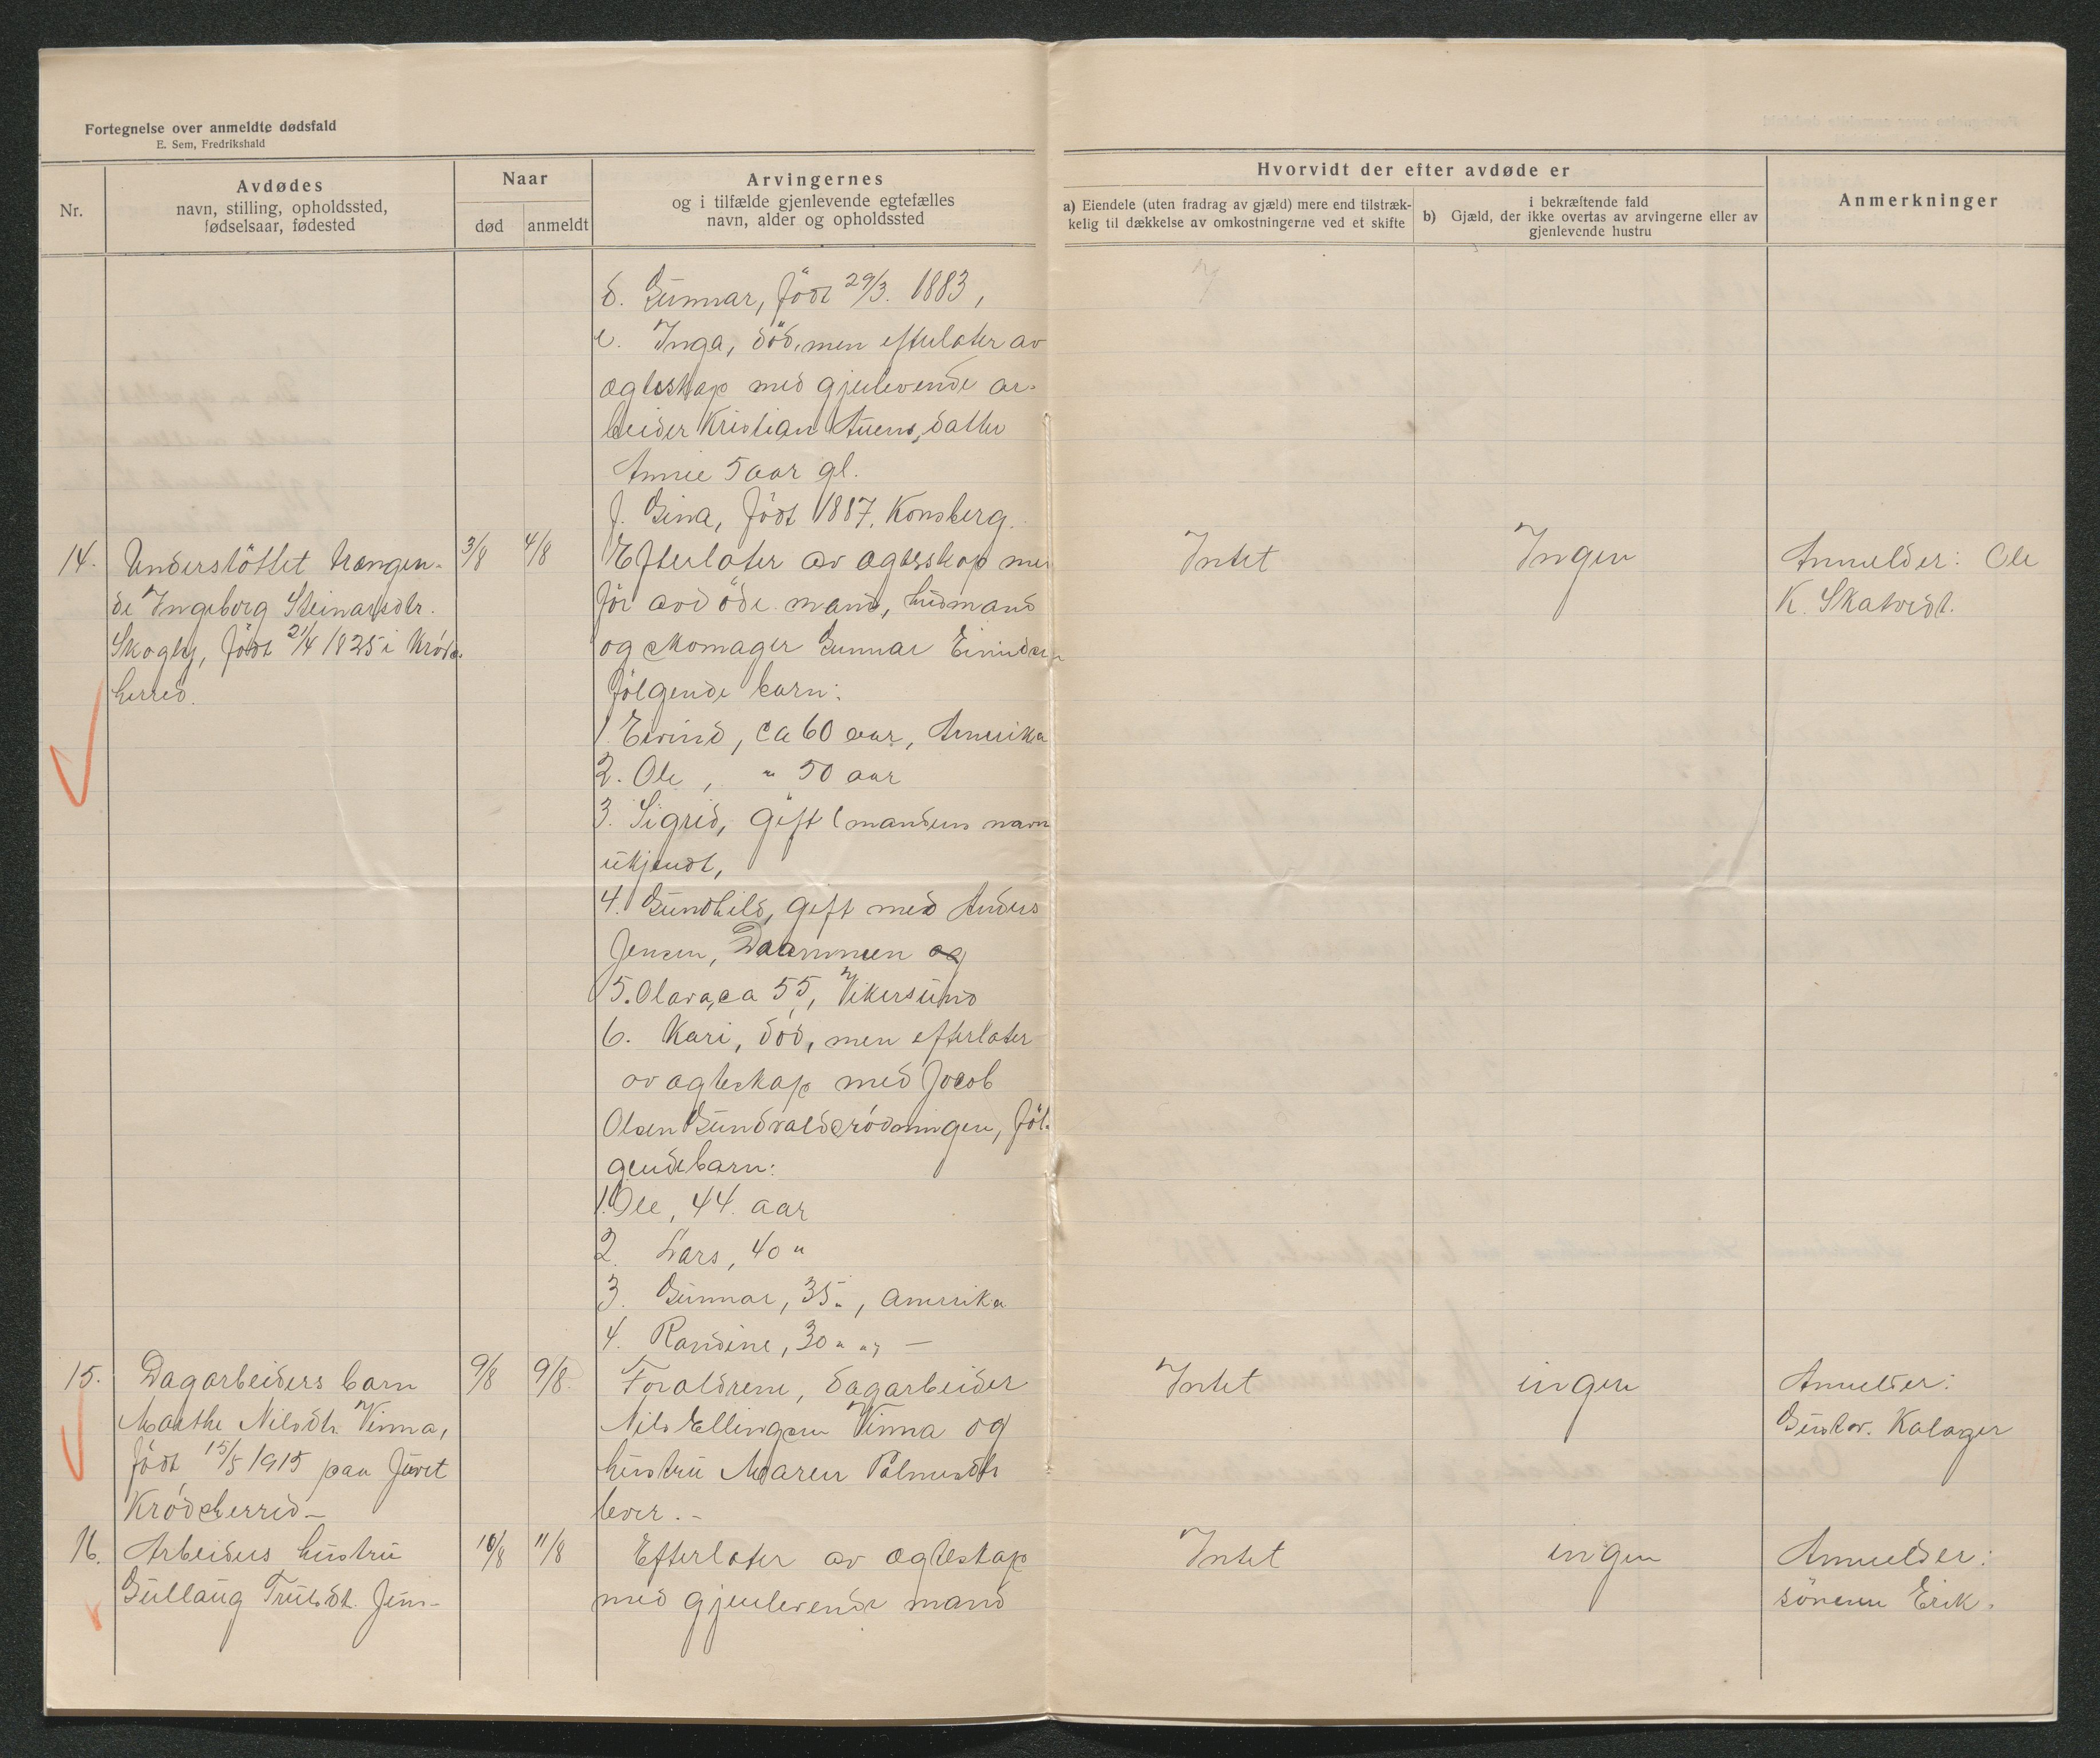 Fortegnelse over anmeldte dødsfald
E. Sem, Fredrikshald
Nr.
Avdødes
navn, stilling, opholdssted,
fødselsaar, fødested
Naar
død
anmeldt
Arvingernes
og i tilfælde gjenlevende egtefælles
navn, alder og opholdssted
Hvorvidt der efter avdøde er
a) Eiendele (uten fradrag av gjæld) mere end tilstræk-
kelig til dækkelse av omkostningerne ved et skifte
i bekræftende fald
b) Gjæld, der ikke overtas av arvingerne eller av
gjenlevende hustru
Anmerkninger
d. Gunnar, født 29/3. 1883,
e. Inga, død, men efterlater av
ægteskap med gjenlevende ar-
beider Kristian datter
Annie 5 aar gl.
f. Gina, født 1887. Konsberg.
14. Understöttet trængen-
de Ingeborg Steinarsdtr.
Skogly, født 21/4 1825 i Kröds-
herred.
3/8
4/8
Efterlater av ægteskap med
før avdöde mand, husmand
og skomager Gunnar
følgende barn:
1. Eivind, ca 60 aar, Amerika
2. Ole, " 50 aar
3. Sigrid, gift (mandens navn
ukjendt,
4. Gundhild, gift med Anders
Jensen, Drammen og
5. Olava, ca 55, Vikersund
6. Kari, död, men efterlater
av ægteskap med Jacob
Olsen Gundvaldsrödningen, föl-
gende barn:
1. Ole, 44. aar
2. Lars, 40 "
3. Gunnar, 35 ", Amerika
4. Randine, 30 " " —
Intet
Ingen
Anmelder: Ole
K. Skatvedt.
15. Dagarbeiders barn
Marthe Nilsdtr. Vinna,
født 15/5 1915 paa Juvet
Krødsherred —
9/8
9/8.
Forældrene, dagarbeider
Nils Ellingsen Vinna og
hustru Maren Palmesdtr
lever. —
Intet
ingen
Anmelder:
Gustav. Kalager
16. Arbeiders hustru
Gullaug Trulsdtr. Jens-
10/8
11/8
Efterlater av ægteskap
med gjenlevende mand
Intet
ingen
Anmelder:
sönnen Erik.